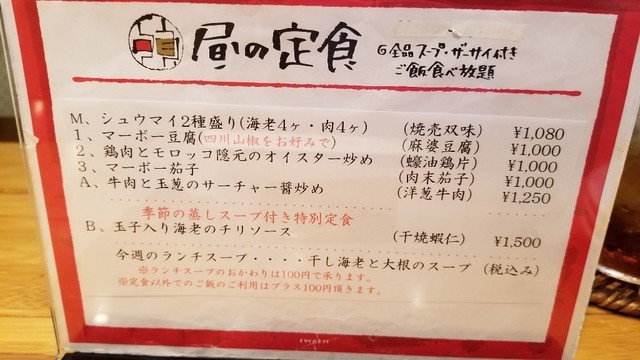 昼の定食
全品スープ・ザーサイ付き
ご飯食べ放題
M、シュウマイ2種盛り(海老4ヶ・肉4ヶ) (焼売双味) ¥1,080
1、マーボー豆腐(四川山椒をお好みで) (麻婆豆腐) ¥1,000
2、鶏肉とモロッコ隠元のオイスター炒め (蠔油鶏片) ¥1,000
3、マーボー茄子 (肉末茄子) ¥1,000
A、牛肉と玉葱のサーチャー醤炒め (洋葱牛肉) ¥1,250
季節の蒸しスープ付き特別定食
B、玉子入り海老のチリソース (干焼蝦仁) ¥1,500
今週のランチスープ・・・・干し海老と大根のスープ (税込み)
※ランチスープのおかわりは100円で承ります。
※定食以外でのご飯のご利用はプラス100円頂きます。